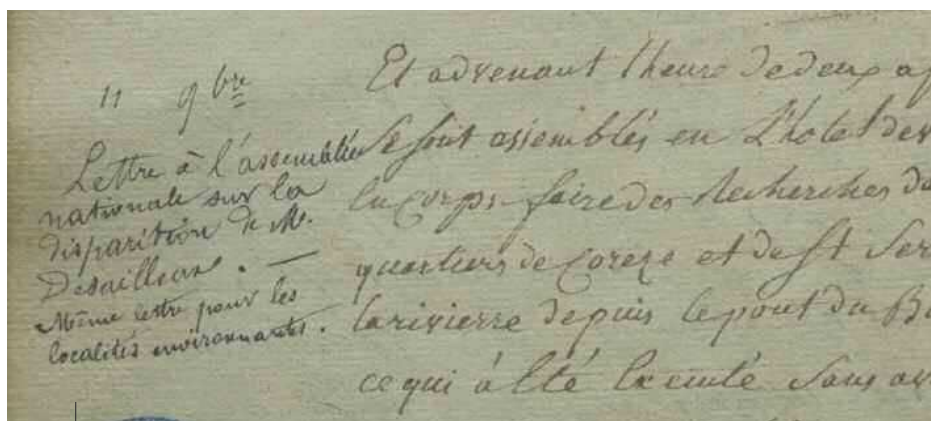 11 9bre
Lettre à l'assemblée
nationale sur la
disparition de M.
Desaillan. —
Même lettre pour les
localités environnantes.
Et advenant lheure de deux
Se sont assemblés en L'hotel de
En Corps faire des Recherches
quartiers de Coreze et de St
la rivierre depuis le pont du
ce qui a Eté Exécuté Sans